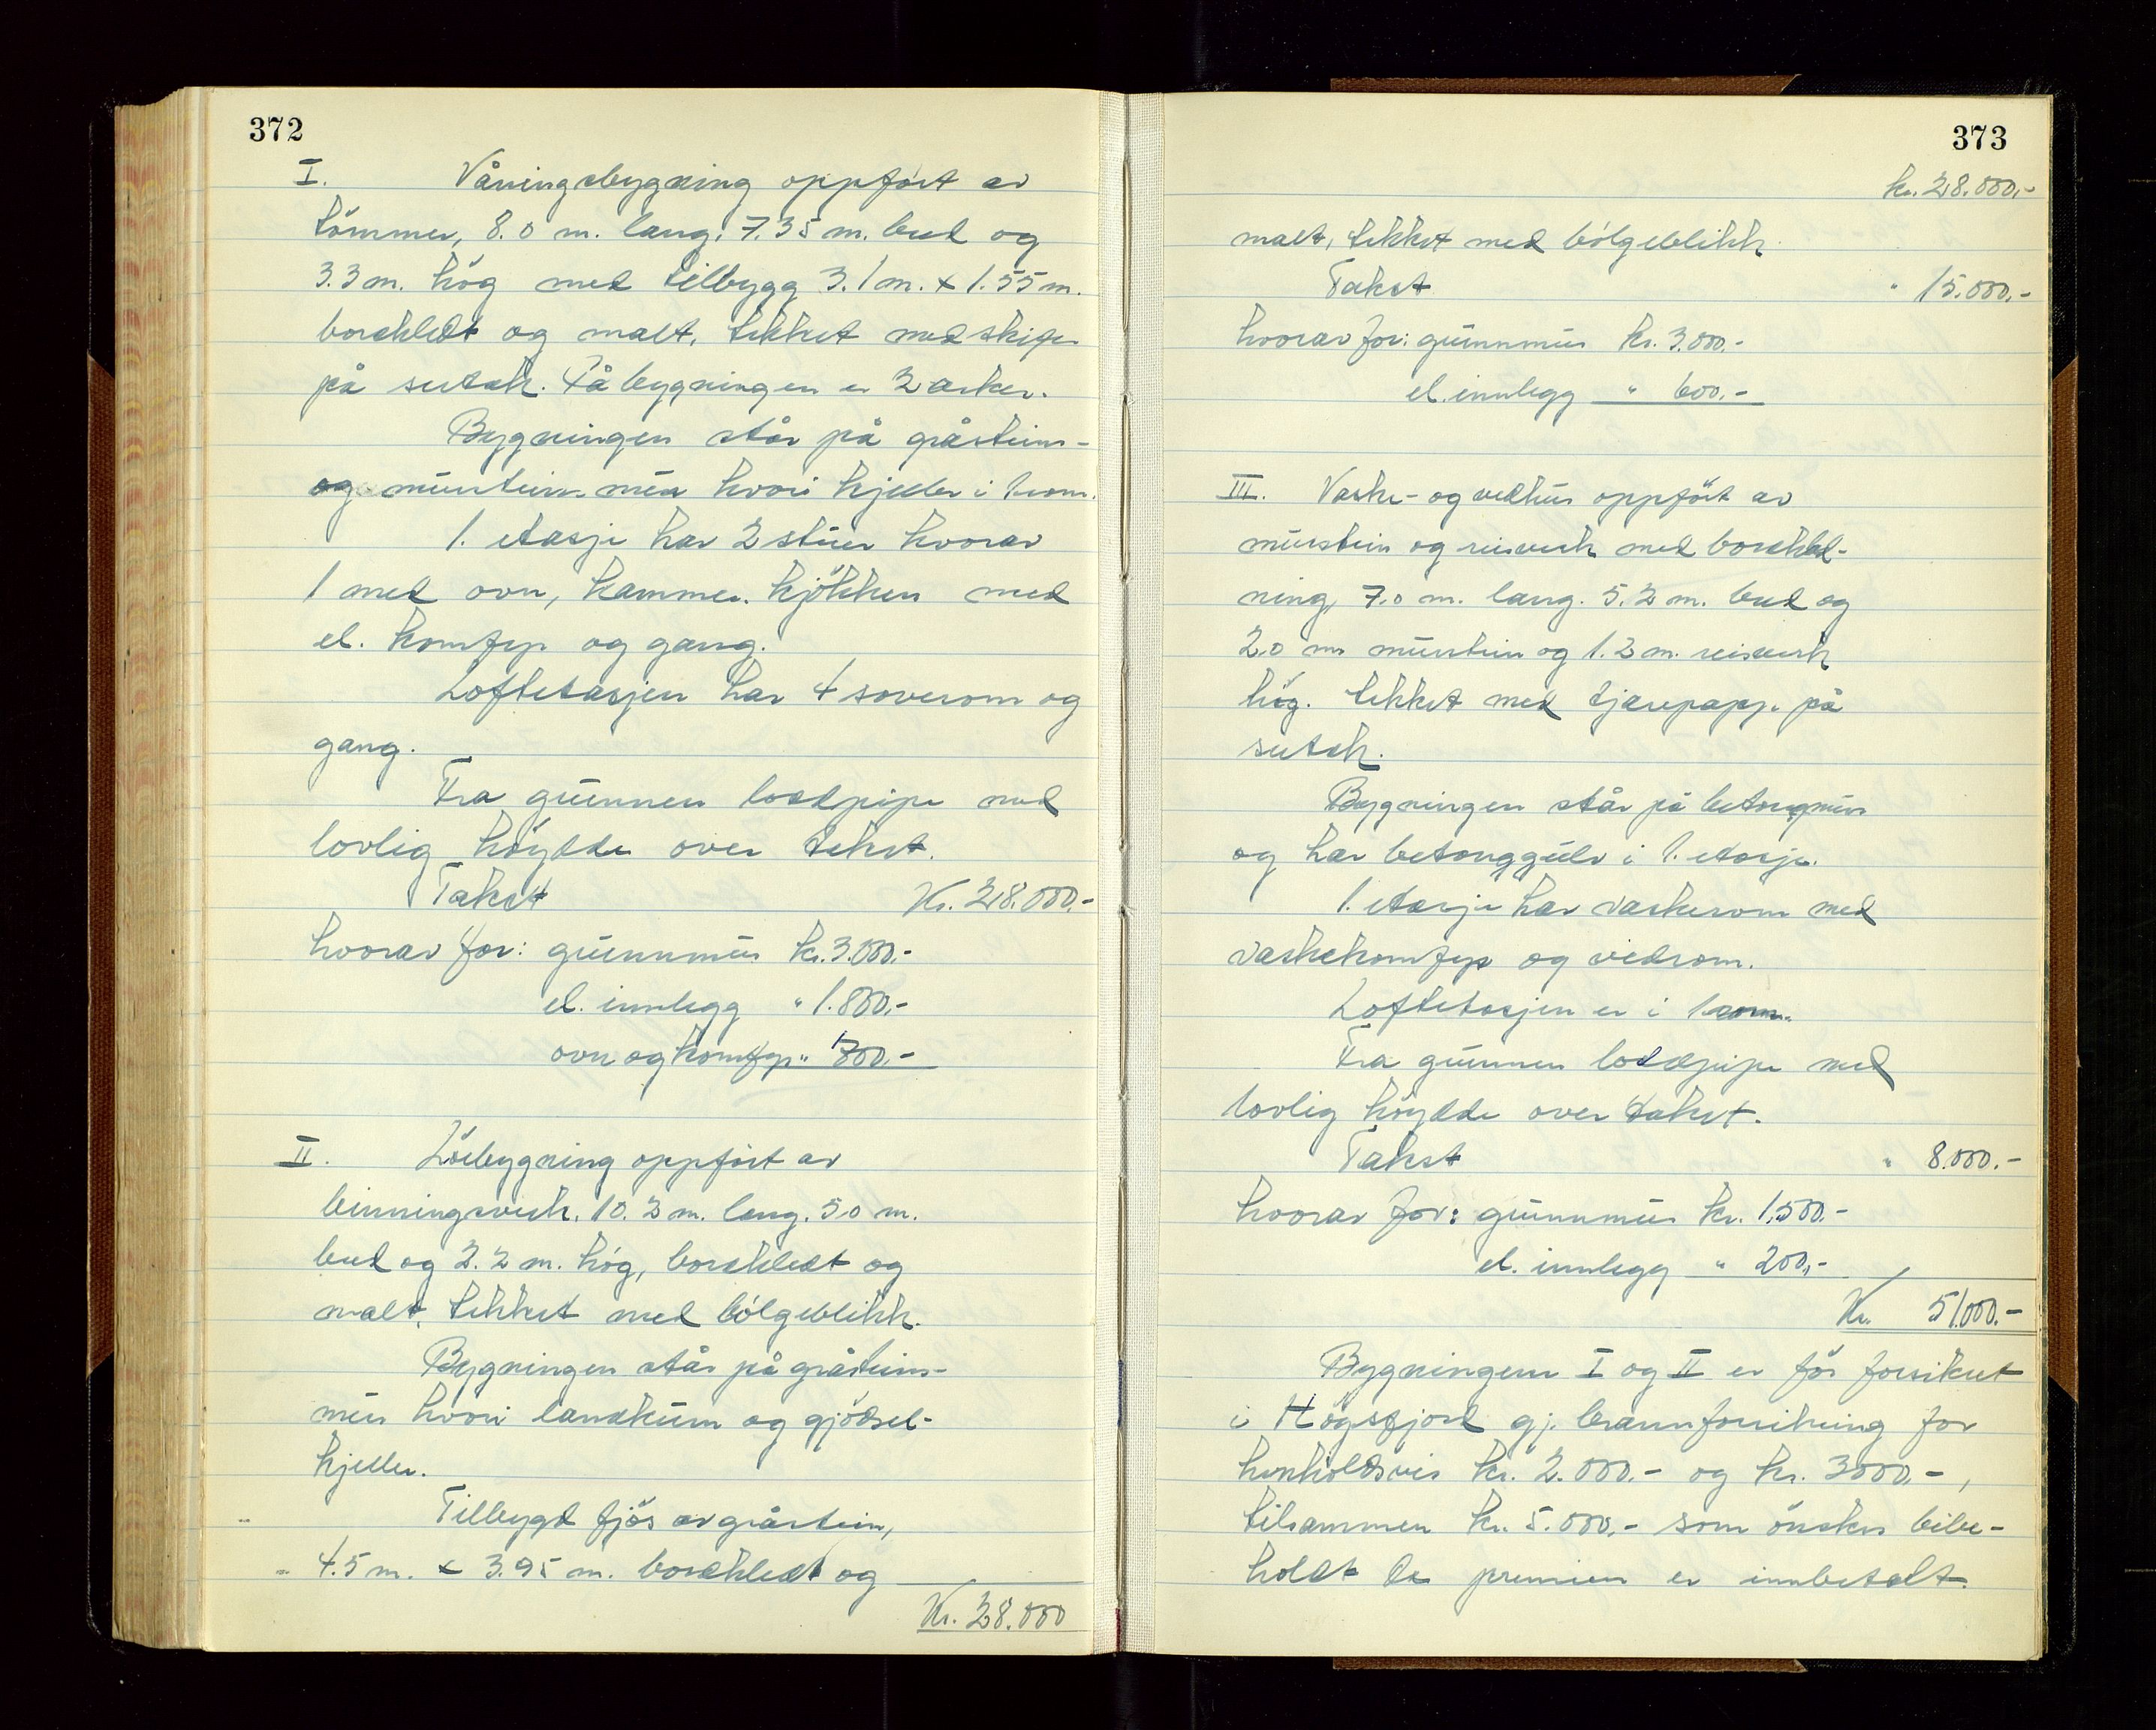 372
I. Våningsbygning oppført av
tömmer, 8.0 m. lang, 7.35 m. bred og
3.3 m. hög med tilbygg 3.1 m. x 1.55 m.
bordkledt og malt, tekket med skifer
på sutak. På bygningen er 2 arker.
Bygningen står på gråsteins-
og murstein mur hvori kjeller i 1 rom.
1. etasje har 2 stuer hvorav
1 med ovn, kammer, kjökken med
el. komfyr og gang.
Loftetasjen har 4 soverom og
gang.
Fra grunnen loddpipe med
lovlig höyde over teket.
Takst Kr. 28.000.-
hvorav for: grunnmur kr. 3.000.-
el. innlegg " 1.800,-
ovn og komfyr " 800.-
II. Löebygning oppfört av
binningsverk, 10.2 m. lang, 5.0 m.
bred og 2.2 m. hög, bordkledt og
malt, tekket med bölgeblikk.
Bygningen står på gråsteins-
mur hvori landkum og gjödsel-
kjeller.
Tilbygd fjös av gråstein,
4.5 m. x 3.95 m. bordkledt og
Kr. 28.000
373
kr. 28.000,-
malt, tekket med bölgeblikk.
Takst " 15.000,-
hvorav for: grunnmur kr. 3.000.-
el. innlegg " 600.-
III. Vaske- og vedhus oppfört av
murstein og reisverk med bordkled-
ning, 7.0 m. lang. 5.2 m. bred og
2.0 m murstein og 1.2 m. reisverk
hög. tekket med tjærepapp på
sutak.
Bygningen står på betongmur
og har betonggulv i 1. etasje.
1. etasje har vaskerom med
vaskekomfyr og vedrom.
Loftetasjen er i 1 rom.
Fra grunnen loddpipe med
lovlig höyde over taket.
Takst " 8.000.-
hvorav for: grunnmur kr. 1.500.-
el. innlegg " 200,-
Kr. 51.000.-
Bygningene I og II er för forsikret
i Högsfjord gj. brannforsikring for
henholdsvis kr. 2.000.- og kr. 3000,-,
tilsammen kr. 5.000,- som önskes bibe-
holdt da premien er innbetalt.